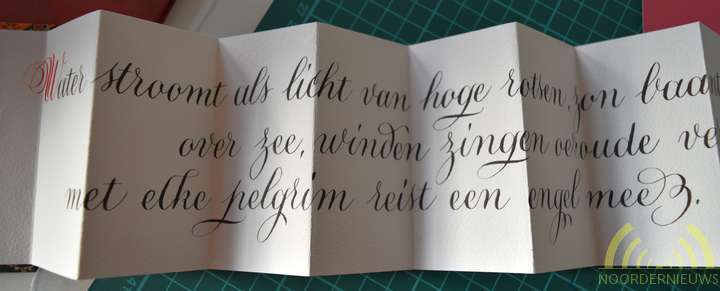 Water stroomt als licht van hoge rotsen, zon baant
over zee, winden zingen oeroude ve
met elke pelgrim reist een engel mee.
NOORDERNIEUWS